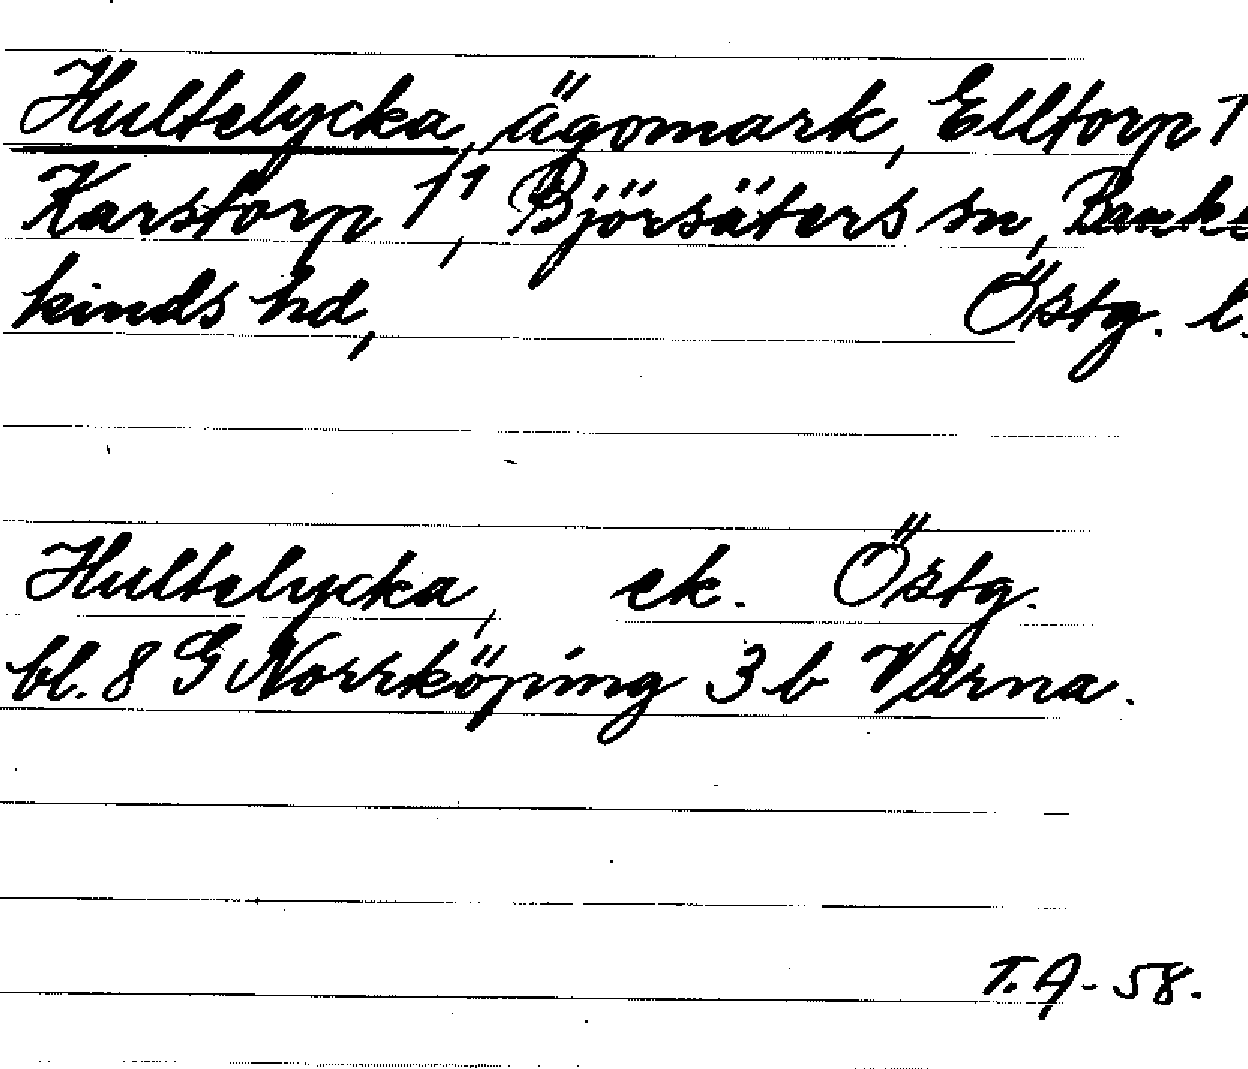 Hultelycka, ägomark, Elltorp 1
Karstorp 1¹, Björsäters sn, Banke
kinds hd, Östg. l.
Hultelycka, ek. Östg.
bl. 8 G Norrköping 3 b Värna.
T.A-58.